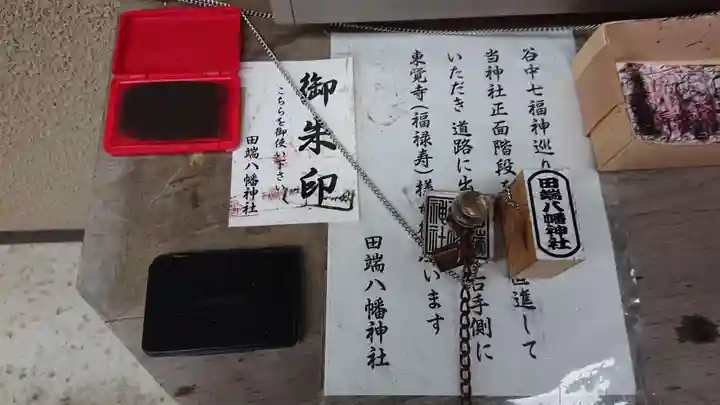 谷中七福神巡り
当神社正面階段を
いただき 道路に出
右手側に
直進して
東覚寺(福禄寿)様
います
田端八幡神社
田端八幡神社
神社
御朱印
こちらを御使い下さい
田端八幡神社